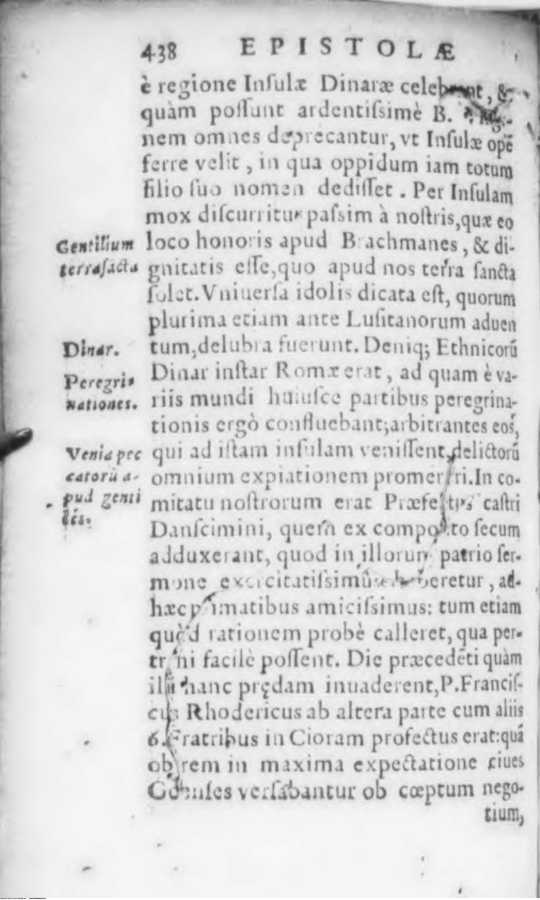 438 EPISTOLÆ
è regione Insulæ Dinaræ celebrant, &
quàm possunt ardentissimè B.
nem omnes deprecantur, vt Insulæ opē
ferre velit, in qua oppidum iam totum
filio suo nomen dedisset. Per Insulam
mox discurritur passim à nostris, quæ eo
Gentilium
terra sācta
loco honoris apud Brachmanes, & di-
gnitatis esse, quo apud nos terra sancta
solet. Vniuersa idolis dicata est, quorum
plurima etiam ante Lusitanorum aduen
Dinar.
tum, delubra fuerunt. Deniq; Ethnicorū
Peregri-
nationes.
Dinar instar Romæ erat, ad quam è va-
riis mundi huiusce partibus peregrina-
tionis ergò confluebant; arbitrantes eos,
Venia pec
catorū a-
pud genti
les.
qui ad istam insulam venissent, delictorū
omnium expiationem promereri. In co-
mitatu nostrorum erat Præfectus castri
Danscimini, quem ex composito secum
adduxerant, quod in illorum patrio ser-
mone exercitatissimus haberetur, ad-
hæc primatibus amicissimus: tum etiam
quòd rationem probè calleret, qua per-
trahi facilè possent. Die præcedēti quàm
illi hanc prędam inuaderent, P. Francis-
cus Rhodericus ab altera parte cum aliis
6. Fratribus in Cioram profectus erat: quā
ob rem in maxima expectatione ciues
Goenses versabantur ob cœptum nego-
tium,